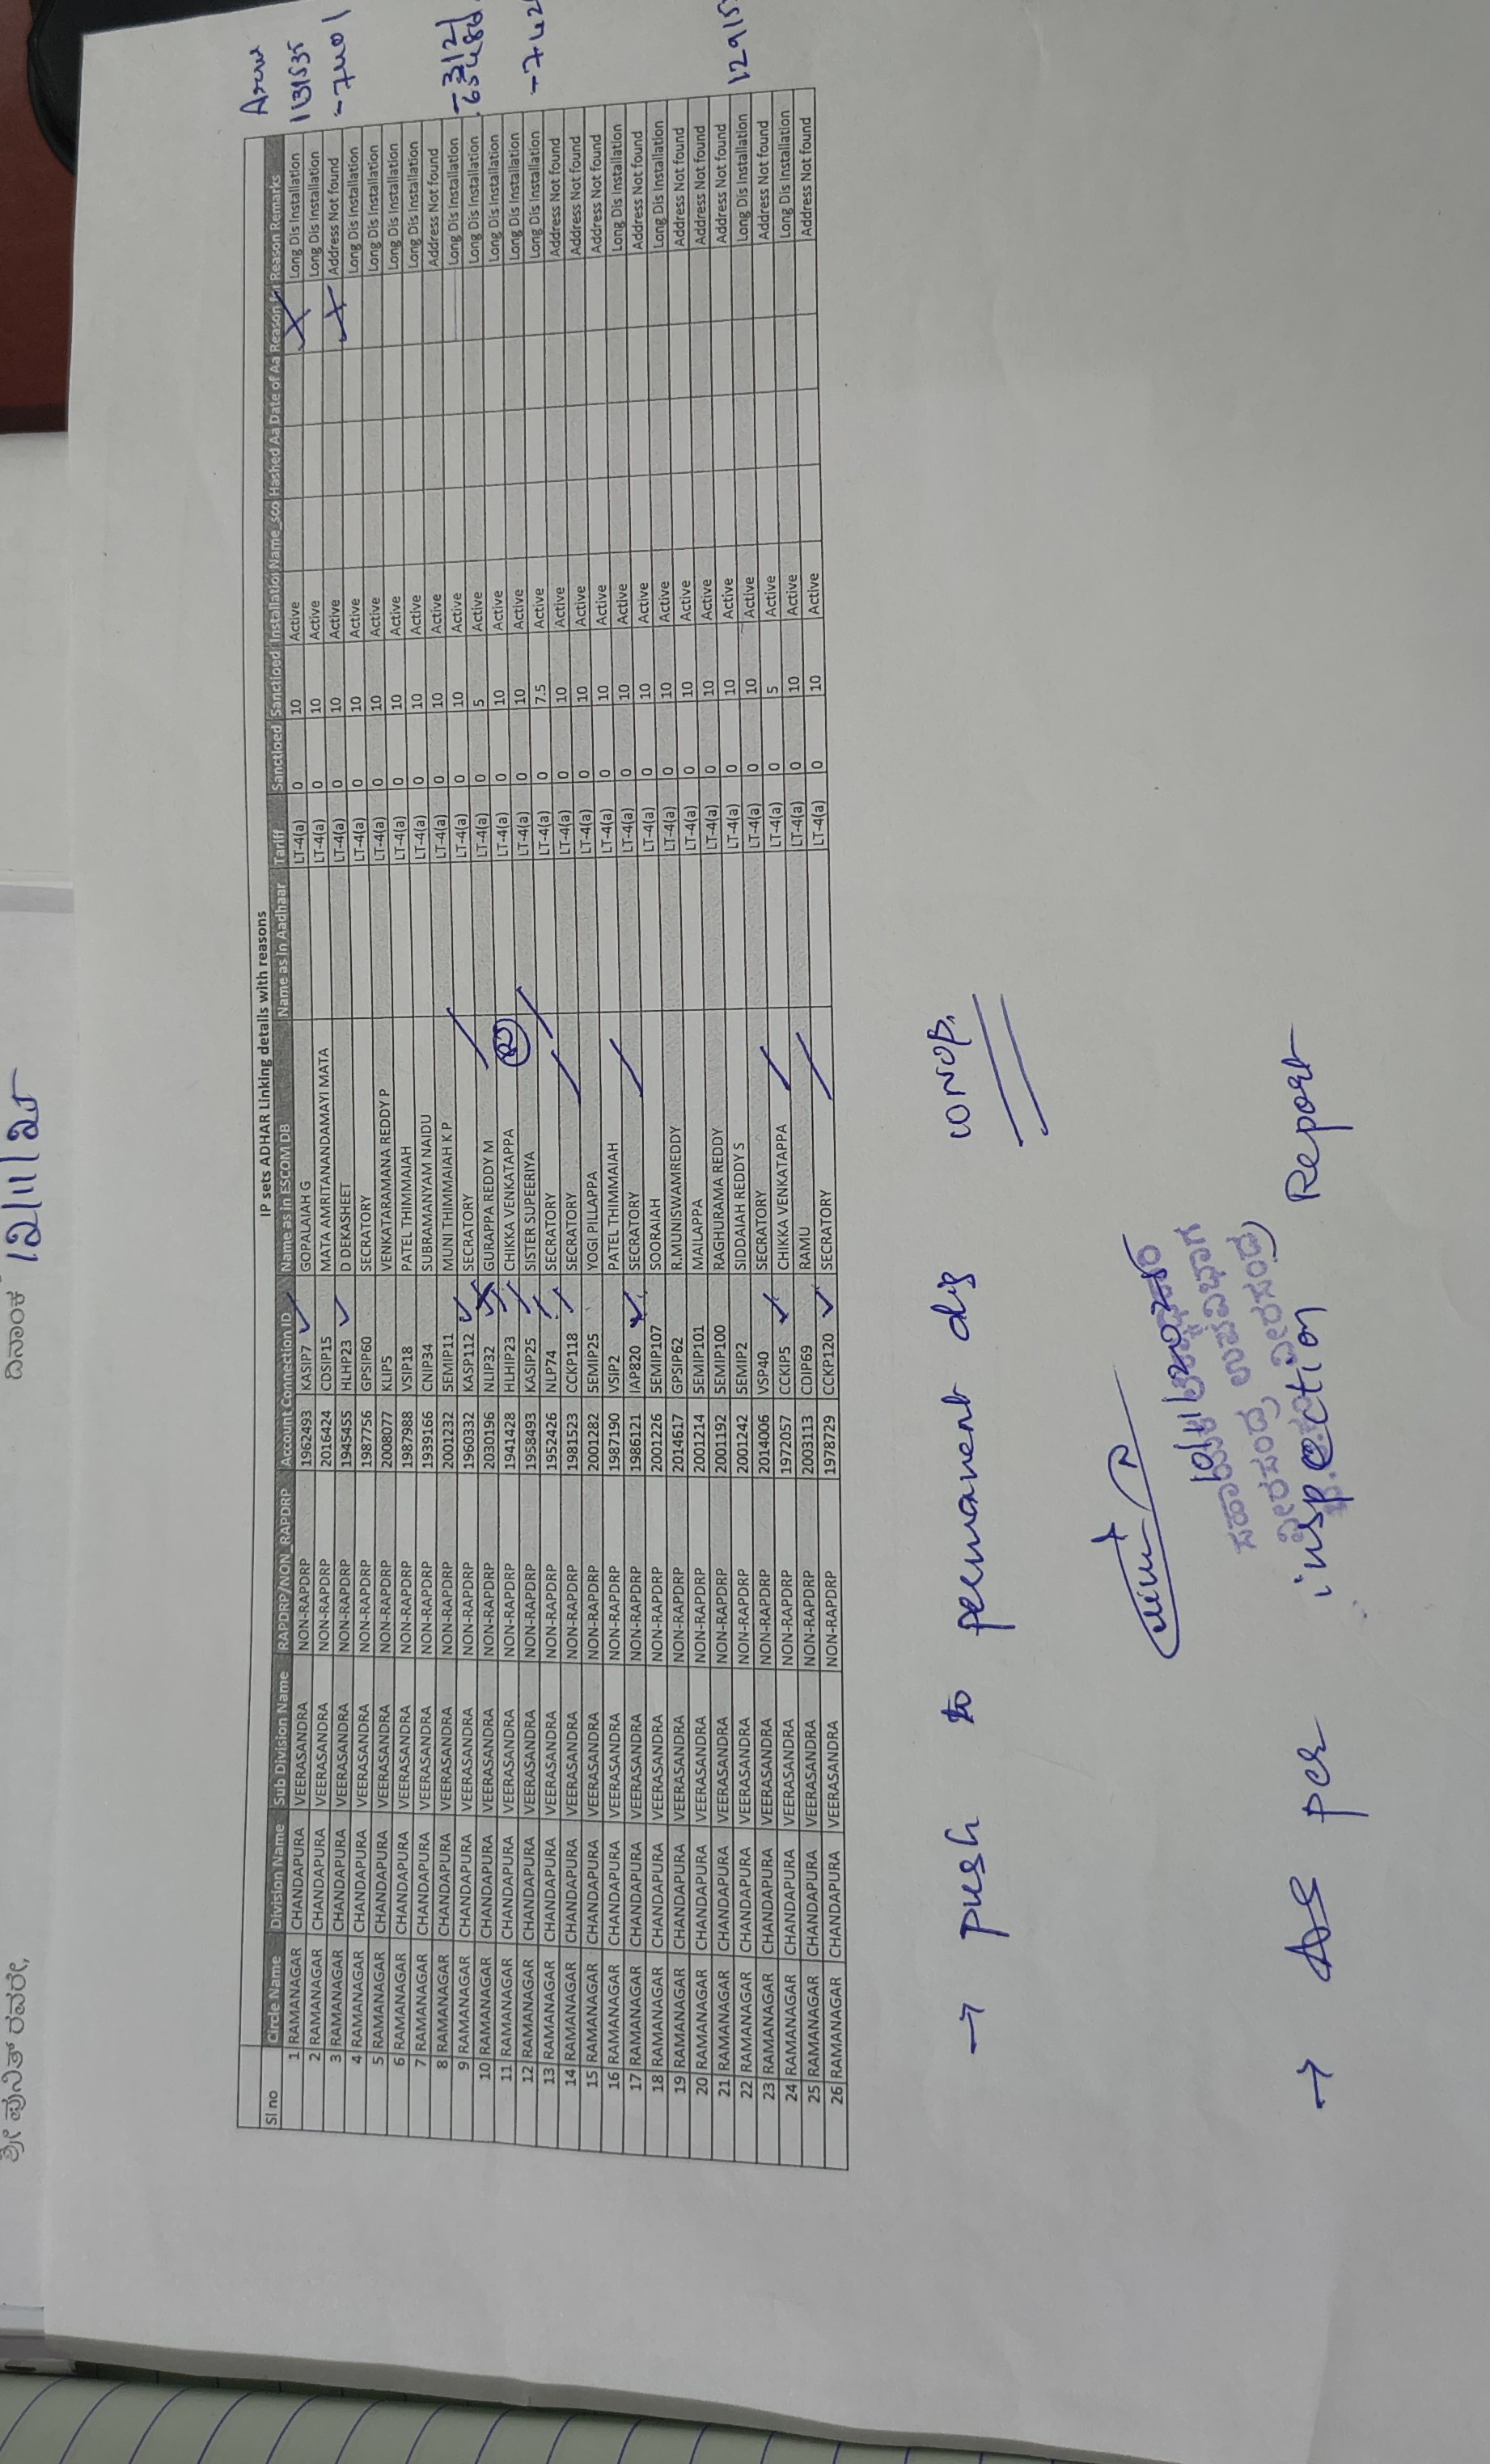 ಶ್ರೀ ಪುನಿತ್ ರವರೇ,
ದಿನಾಂಕ 12/11/25
IP sets ADHAR Linking details with reasons
Sl no Circle Name Division Name Sub Division Name RAPDRP/NON_RAPDRP Account Connection ID Name as in ESCOM DB Name as in Aadhaar Tariff Sanctioed Sanctioed Installatio Name_sco Hashed Aa Date of Aa Reason for Reason Remarks
1 RAMANAGAR CHANDAPURA VEERASANDRA NON-RAPDRP 1962493 KASIP7 GOPALAIAH G LT-4(a) 0 10 Active Long Dis Installation
2 RAMANAGAR CHANDAPURA VEERASANDRA NON-RAPDRP 2016424 CDSIP15 MATA AMRITANANDAMAYI MATA LT-4(a) 0 10 Active Long Dis Installation
3 RAMANAGAR CHANDAPURA VEERASANDRA NON-RAPDRP 1945455 HLHP23 D DEKASHEET LT-4(a) 0 10 Active Address Not found
4 RAMANAGAR CHANDAPURA VEERASANDRA NON-RAPDRP 1987756 GPSIP60 SECRATORY LT-4(a) 0 10 Active Long Dis Installation
5 RAMANAGAR CHANDAPURA VEERASANDRA NON-RAPDRP 2008077 KLIP5 VENKATARAMANA REDDY P LT-4(a) 0 10 Active Long Dis Installation
6 RAMANAGAR CHANDAPURA VEERASANDRA NON-RAPDRP 1987988 VSIP18 PATEL THIMMAIAH LT-4(a) 0 10 Active Long Dis Installation
7 RAMANAGAR CHANDAPURA VEERASANDRA NON-RAPDRP 1939166 CNIP34 SUBRAMANYAM NAIDU LT-4(a) 0 10 Active Long Dis Installation
8 RAMANAGAR CHANDAPURA VEERASANDRA NON-RAPDRP 2001232 SEMIP11 MUNI THIMMAIAH K P LT-4(a) 0 10 Active Address Not found
9 RAMANAGAR CHANDAPURA VEERASANDRA NON-RAPDRP 1960332 KASP112 SECRATORY LT-4(a) 0 10 Active Long Dis Installation
10 RAMANAGAR CHANDAPURA VEERASANDRA NON-RAPDRP 2030196 NLIP32 GURAPPA REDDY M LT-4(a) 0 5 Active Long Dis Installation
11 RAMANAGAR CHANDAPURA VEERASANDRA NON-RAPDRP 1941428 HLHIP23 CHIKKA VENKATAPPA LT-4(a) 0 10 Active Long Dis Installation
12 RAMANAGAR CHANDAPURA VEERASANDRA NON-RAPDRP 1958493 KASIP25 SISTER SUPEERIYA LT-4(a) 0 10 Active Long Dis Installation
13 RAMANAGAR CHANDAPURA VEERASANDRA NON-RAPDRP 1952426 NLP74 SECRATORY LT-4(a) 0 7.5 Active Long Dis Installation
14 RAMANAGAR CHANDAPURA VEERASANDRA NON-RAPDRP 1981523 CCKP118 SECRATORY LT-4(a) 0 10 Active Address Not found
15 RAMANAGAR CHANDAPURA VEERASANDRA NON-RAPDRP 2001282 SEMIP25 YOGI PILLAPPA LT-4(a) 0 10 Active Address Not found
16 RAMANAGAR CHANDAPURA VEERASANDRA NON-RAPDRP 1987190 VSIP2 PATEL THIMMAIAH LT-4(a) 0 10 Active Address Not found
17 RAMANAGAR CHANDAPURA VEERASANDRA NON-RAPDRP 1986121 IAP820 SECRATORY LT-4(a) 0 10 Active Long Dis Installation
18 RAMANAGAR CHANDAPURA VEERASANDRA NON-RAPDRP 2001226 SEMIP107 SOORAIAH LT-4(a) 0 10 Active Address Not found
19 RAMANAGAR CHANDAPURA VEERASANDRA NON-RAPDRP 2014617 GPSIP62 R.MUNISWAMREDDY LT-4(a) 0 10 Active Long Dis Installation
20 RAMANAGAR CHANDAPURA VEERASANDRA NON-RAPDRP 2001214 SEMIP101 MAILAPPA LT-4(a) 0 10 Active Address Not found
21 RAMANAGAR CHANDAPURA VEERASANDRA NON-RAPDRP 2001192 SEMIP100 RAGHURAMA REDDY LT-4(a) 0 10 Active Address Not found
22 RAMANAGAR CHANDAPURA VEERASANDRA NON-RAPDRP 2001242 SEMIP2 SIDDAIAH REDDY S LT-4(a) 0 10 Active Address Not found
23 RAMANAGAR CHANDAPURA VEERASANDRA NON-RAPDRP 2014006 VSP40 SECRATORY LT-4(a) 0 10 Active Long Dis Installation
24 RAMANAGAR CHANDAPURA VEERASANDRA NON-RAPDRP 1972057 CCKIP5 CHIKKA VENKATAPPA LT-4(a) 0 5 Active Address Not found
25 RAMANAGAR CHANDAPURA VEERASANDRA NON-RAPDRP 2003113 CDIP69 RAMU LT-4(a) 0 10 Active Long Dis Installation
26 RAMANAGAR CHANDAPURA VEERASANDRA NON-RAPDRP 1978729 CCKP120 SECRATORY LT-4(a) 0 10 Active Address Not found
131535
-7401
-312
-742
12915
→ push to permanent dis
ವೀರಸಂದ್ರ ಉಪವಿಭಾಗ
→ As per inspection Report